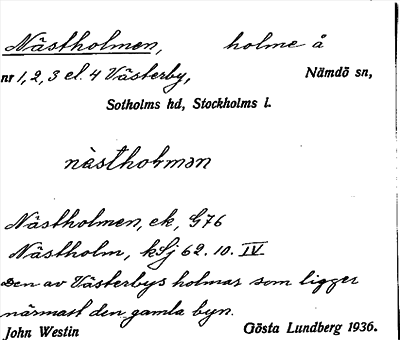 Nästholmen, holme å
nr 1, 2, 3 el. 4 Västerby, Nämdö sn,
Sotholms hd, Stockholms l.
nàstholmən
Nästholmen, ek, G76
Nästholm, kSj 62. 10. IV
Den av Västerbys holmar som ligger
närmast den gamla byn.
John Westin Gösta Lundberg 1936.